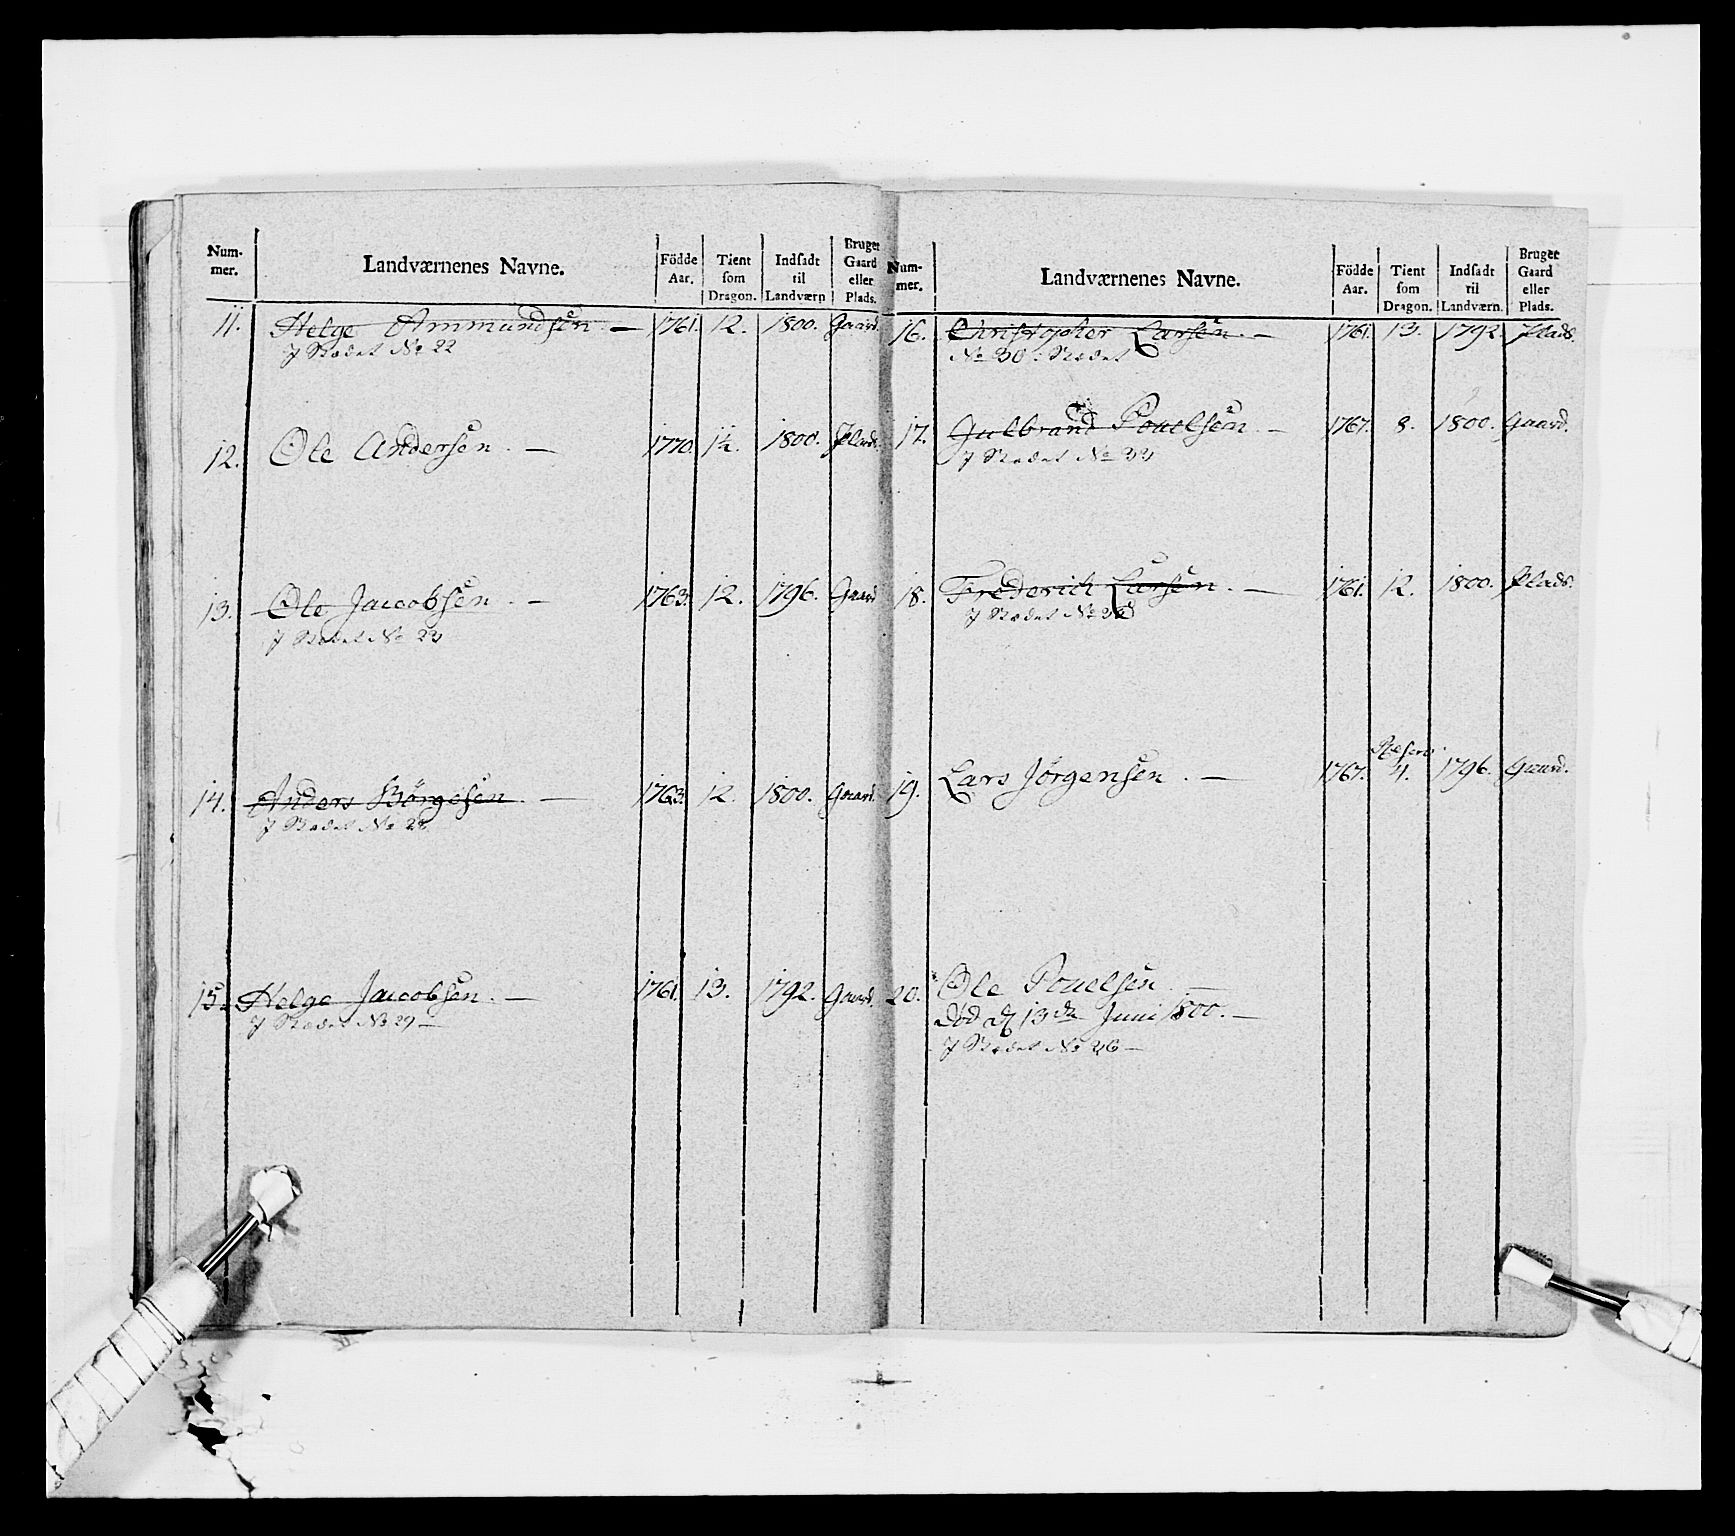 Num-mer. Landværnenes Navne. Fódde Aar. Tient som Dragon. Indsadt til Landværn Bruger Gaard eller Plads.
11. Helge Ammundsen — 1761. 12. 1800. Gaard.
J Stædet No 22
12. Ole Andersen — 1770. 12. 1800. Plads.
13. Ole Jacobsen — 1763. 12. 1796. Gaard
J Stædet No 23
14. Anders Börgesen — 1763. 12. 1800. Gaard.
J Stædet No 28
15. Helge Jacobsen — 1761. 13. 1792. Gaard.
J Stædet No 29 —
Num-mer. Landværnenes Navne. Fódde Aar. Tient som Dragon. Indsadt til Landværn. Bruger Gaard eller Plads.
16. Christopher Larsen — 1761. 13. 1792. Plads.
No 30. Stædet
17. Gulbrand Pouelsen — 1767. 8. 1800. Gaard.
J Stædet No 33
18. Frederich Larsen — 1761. 12. 1800. Plads.
J Stædet No
19. Lars Jörgensen — 1767. Reserv. 4. 1796. Gaard.
20. Ole Pouelsen —
död d 13de Juni 1800. —
J Stædet No 26 —